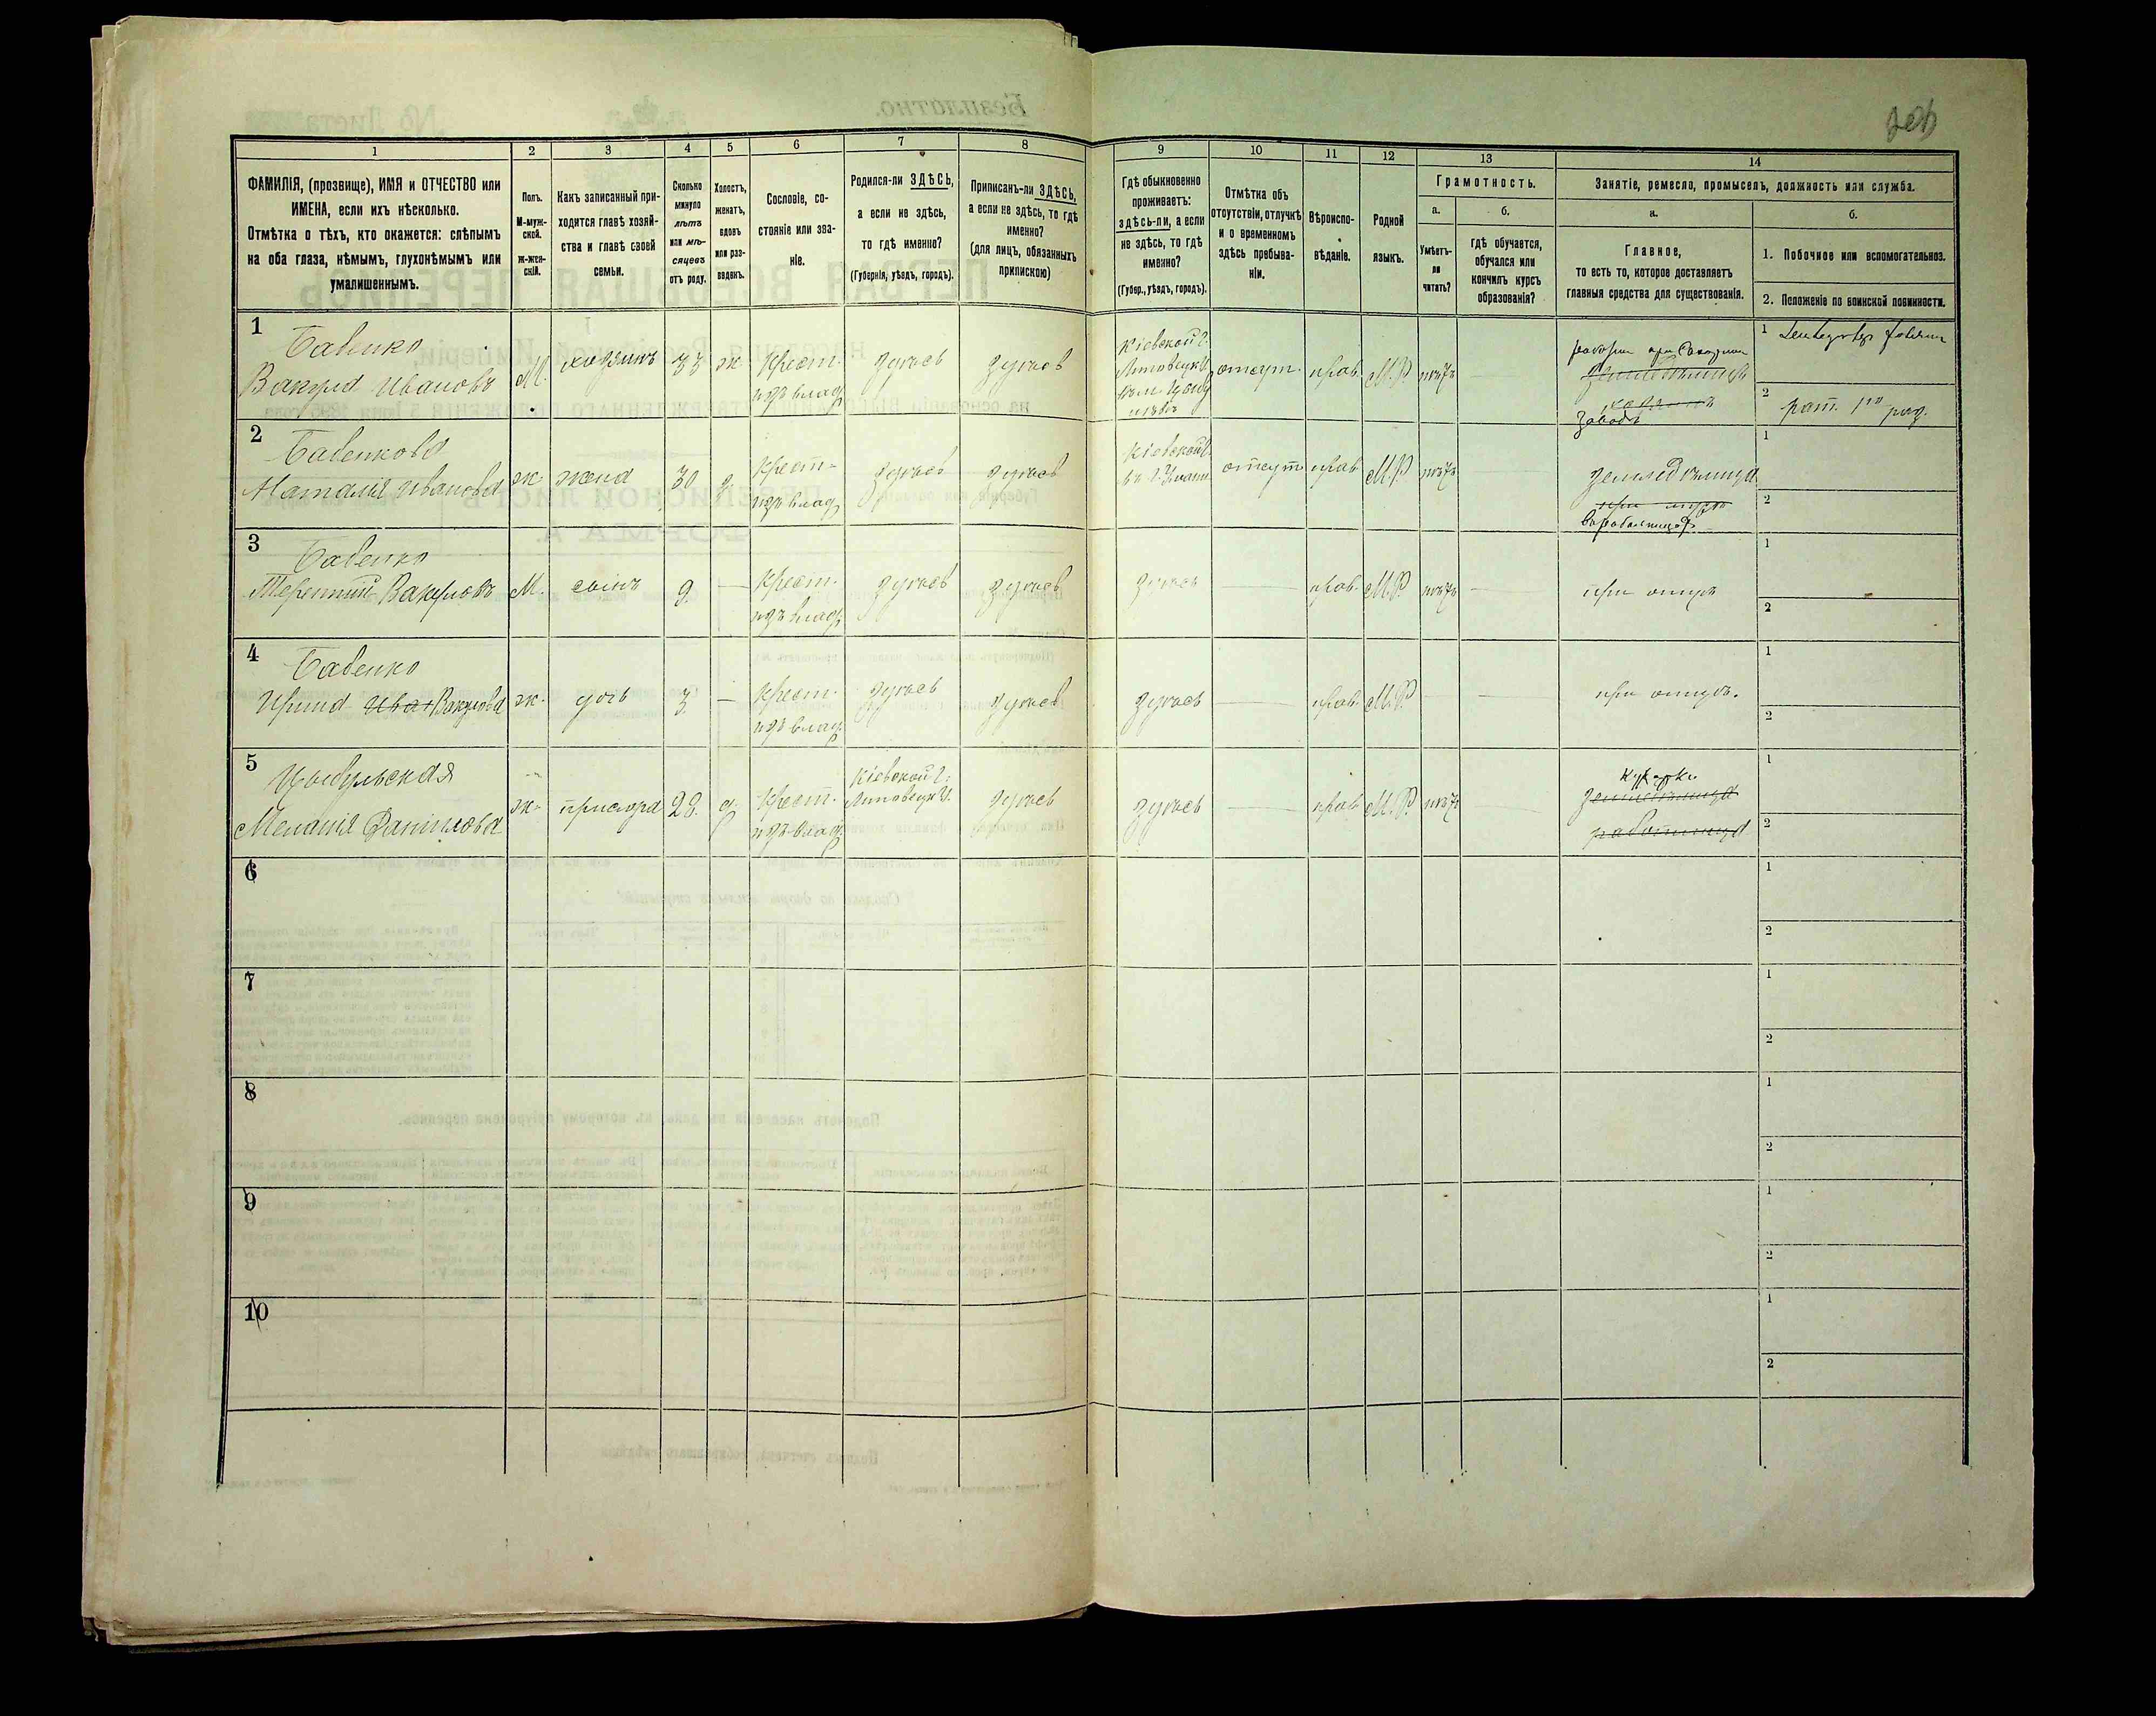 1 2 3 4 5 6 7 8 9 10 11 12 13 14
ФАМИЛІЯ, (прозвище), ИМЯ и ОТЧЕСТВО или
ИМЕНА, если ихъ нѣсколько.
Отмѣтка о тѣхъ, кто окажется: слѣпымъ
на оба глаза, нѣмымъ, глухонѣмымъ или
умалишеннымъ.
Полъ.
М-муж-
ской.
Ж-жен-
скій.
Какъ записанный при-
ходится главѣ хозяй-
ства и главѣ своей
семьи.
Сколько
минуло
лѣтъ
или мѣ-
сяцевъ
отъ роду.
Холостъ,
женатъ,
вдовъ
или раз-
веденъ.
Сословіе, со-
стояніе или зва-
ніе.
Родился-ли ЗДѢСЬ,
а если не здѣсь,
то гдѣ именно?
(Губернія, уѣздъ, городъ).
Приписанъ-ли ЗДѢСЬ,
а если не здѣсь, то гдѣ
именно?
(для лицъ, обязанныхъ
припискою)
Гдѣ обыкновенно
проживаетъ:
здѣсь-ли, а если
не здѣсь, то гдѣ
именно?
(Губер., уѣздъ, городъ).
Отмѣтка объ
отсутствіи, отлучкѣ
и о временномъ
здѣсь пребыва-
ніи.
Вѣроиспо-
вѣданіе.
Родной
языкъ.
Грамотность.
а.
Умѣетъ-
ли
читать?
б.
гдѣ обучается,
обучался или
кончилъ курсъ
образованія?
Занятіе, ремесло, промыселъ, должность или служба.
а.
Главное,
то есть то, которое доставляетъ
главныя средства для существованія.
б.
1. Побочное или вспомогательное.
2. Положеніе по воинской повинности.
1
Бабенко
Вакула Ивановъ
М.
хозяинъ
33
ж.
Крест.
изъ влад.
здѣсь
здѣсь
Кіевской г.
Липовецк. у.
отсут.
прав.
М.Р.
нѣтъ
земледѣлецъ
хозяинъ
завода
1
2
рат. 1го раз.
2
Бабенкова
Наталія Иванова
ж.
жена
30
з.
Крест.
изъ влад.
здѣсь
здѣсь
Кіевской г.
отсут.
прав.
М.Р.
нѣтъ
земледѣлица
при мужѣ
1
2
3
Бабенко
Терентій Вакуловъ
М.
сынъ
9.
—
Крест.
изъ влад.
здѣсь
здѣсь
здѣсь
прав.
М.Р.
нѣтъ
при отцѣ
1
2
4
Бабенко
Ирина Иван Вакулова
ж.
дочь
3.
—
Крест.
изъ влад.
здѣсь
здѣсь
здѣсь
прав.
М.Р.
при отцѣ.
1
2
5
Цыбульская
Меланія Данилова
ж.
прислуга
28.
д.
Крест.
изъ влад.
Кіевской г.
Липовецк. у.
здѣсь
здѣсь
прав.
М.Р.
нѣтъ
кухарка
земледѣлица
работница
1
2
6
1
2
7
1
2
8
1
2
9
1
2
10
1
2